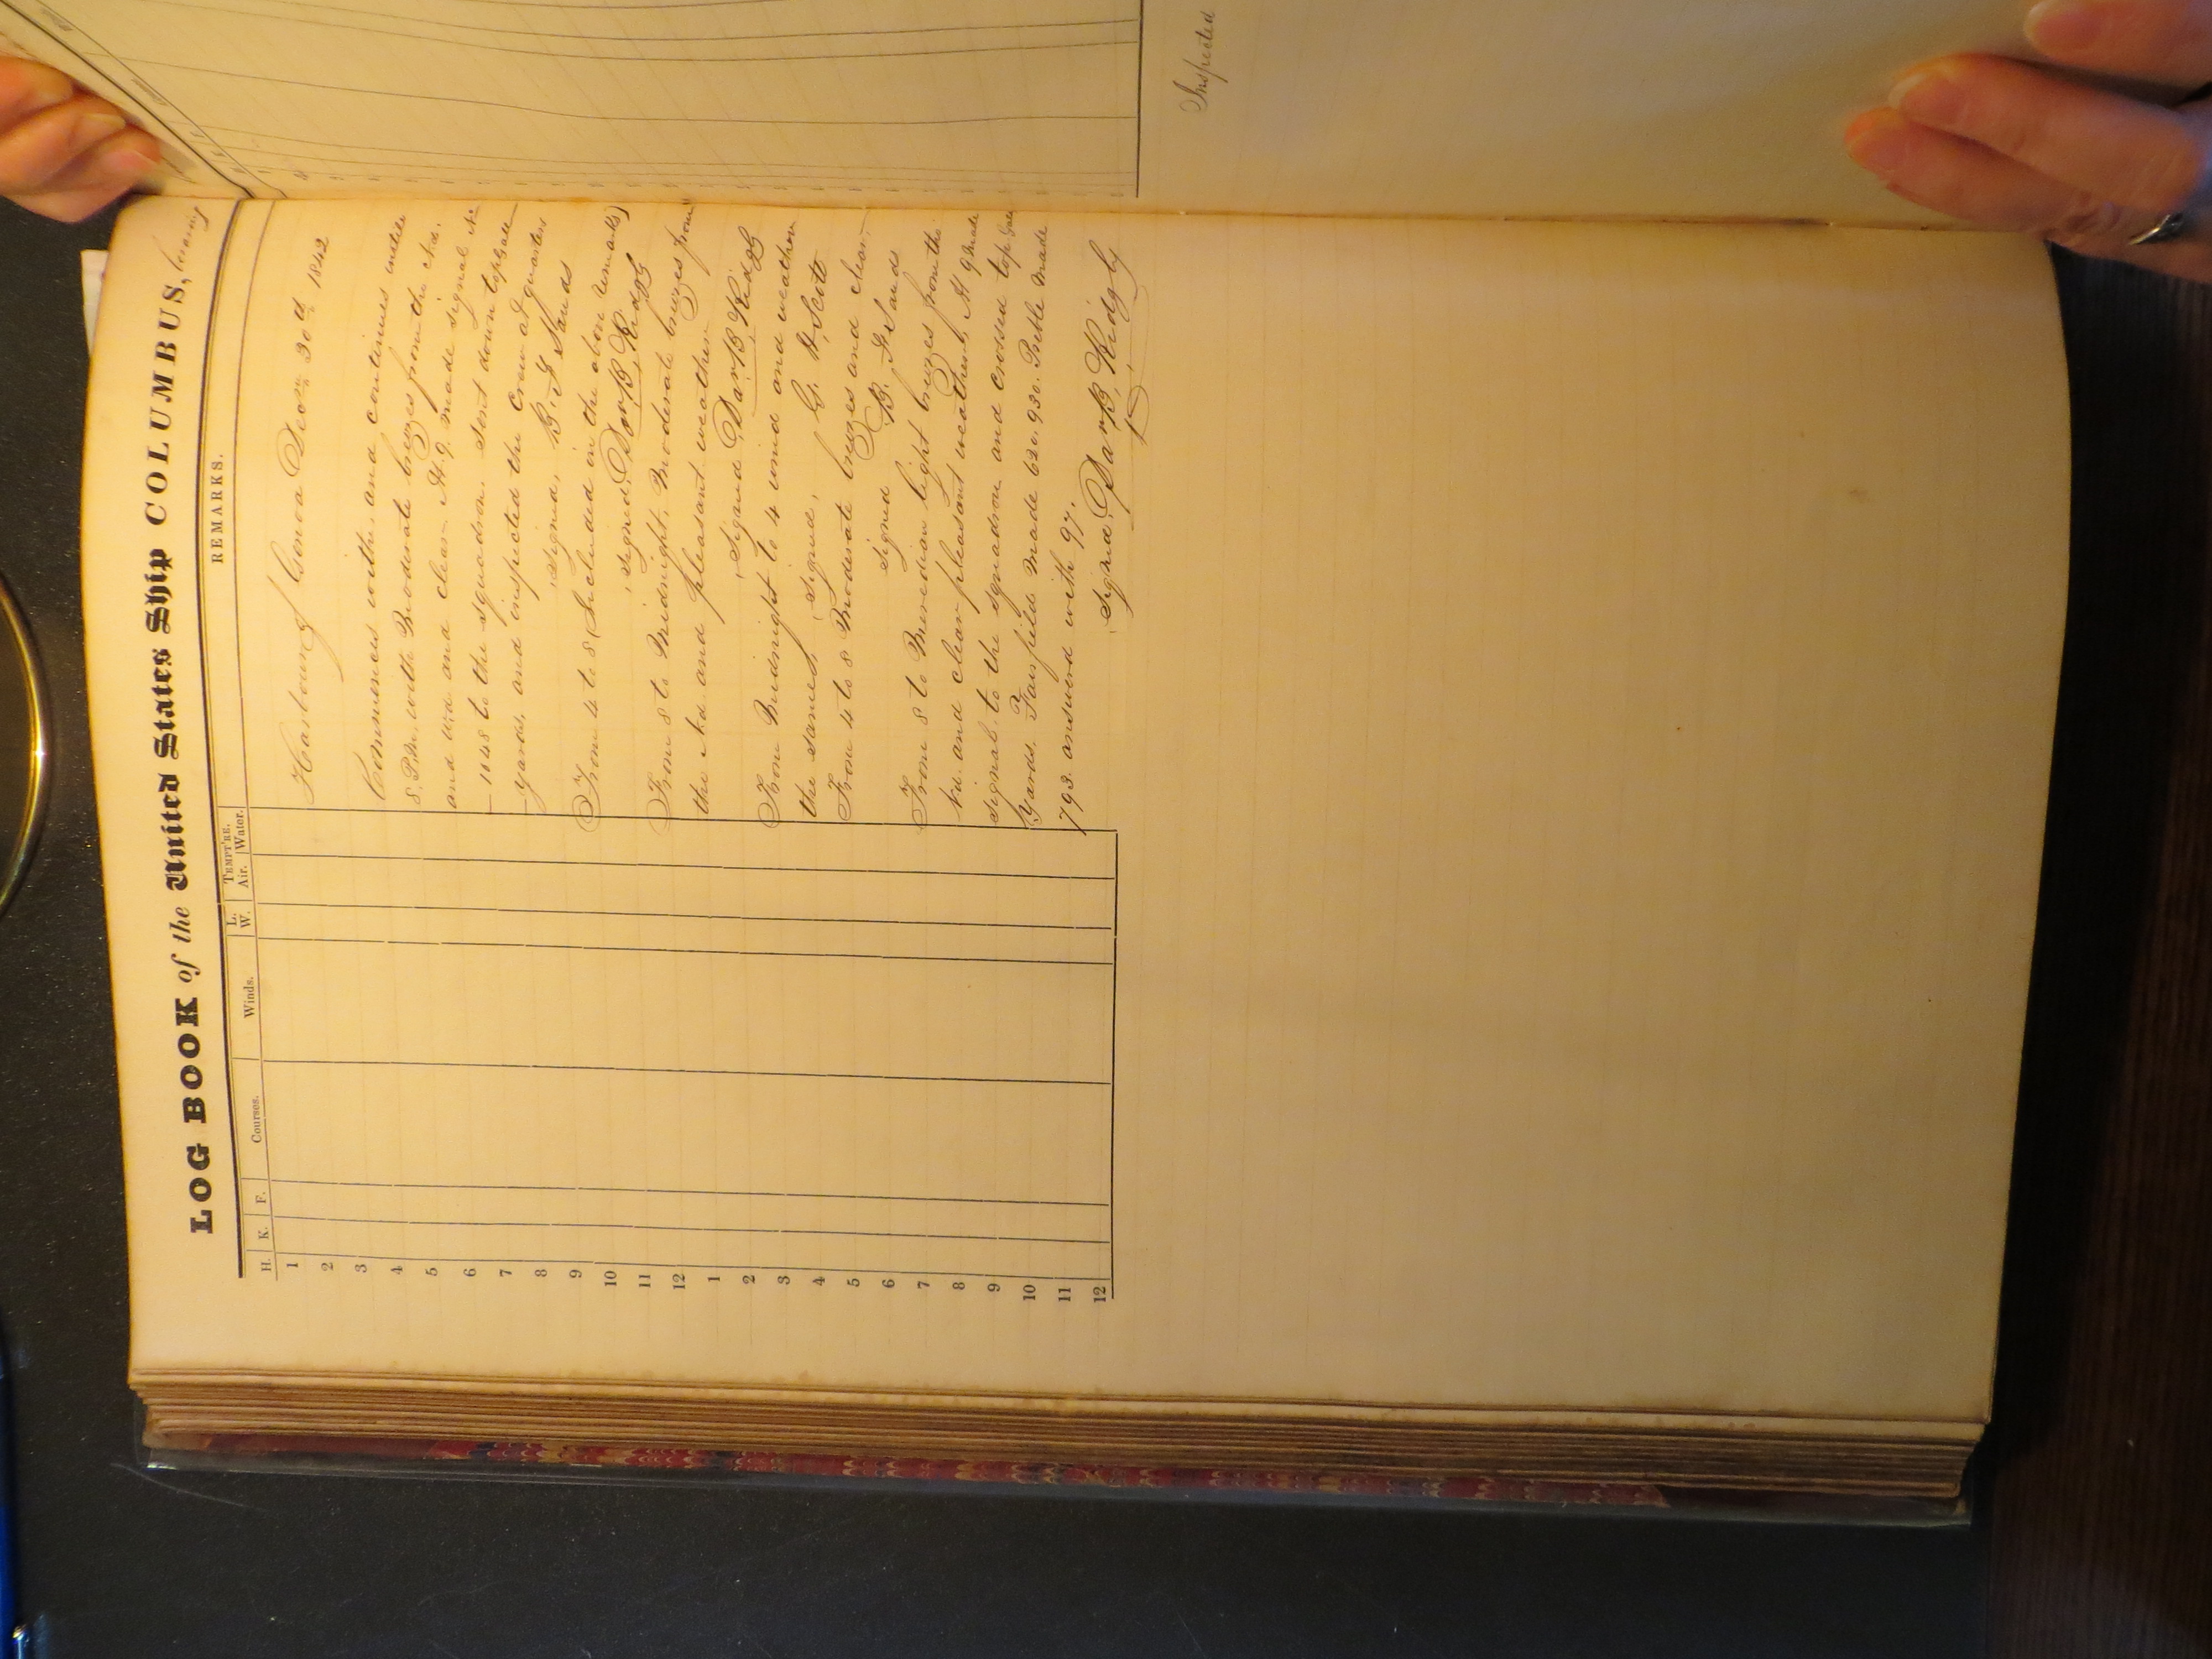 LOG BOOK of the United States Ship COLUMBUS, leaving
H. K. F. Courses. Winds. L. W. TEMPT'RE. Air. Water. REMARKS.
1
2
3
4
5
6
7
8
9
10
11
12
1
2
3
4
5
6
7
8
9
10
11
12
Harbour of Genoa Decem 30th 1842
Commences with, and continues untill
8. P.M. with Moderate breezes from the Nd.
and Wd and clear. At 9. made signal No
1648 to the squadron. Sent down topgall
yards, and inspected the Crew at quarters
Signed, B. F. Sands
From 4 to 8 (Included in the above remarks)
Signed,
From 8 to Midnight, Moderate breezes from
the Nd and pleasant weather.
Signed,
From Midnight to 4 wind and weather
the same. Signed, G. H. Scott
From 4 to 8 Moderate breezes and clear.
Signed B. F. Sands
From 8 to Meredian light breezes from the
Nd. and clear pleasant weather, At 9 Made
signal to the squadron and crossed top Gall
Yards. Fairfield Made 620. 930. Preble Made
793. answerd with 97.
Signed, Ridgely
Inspected